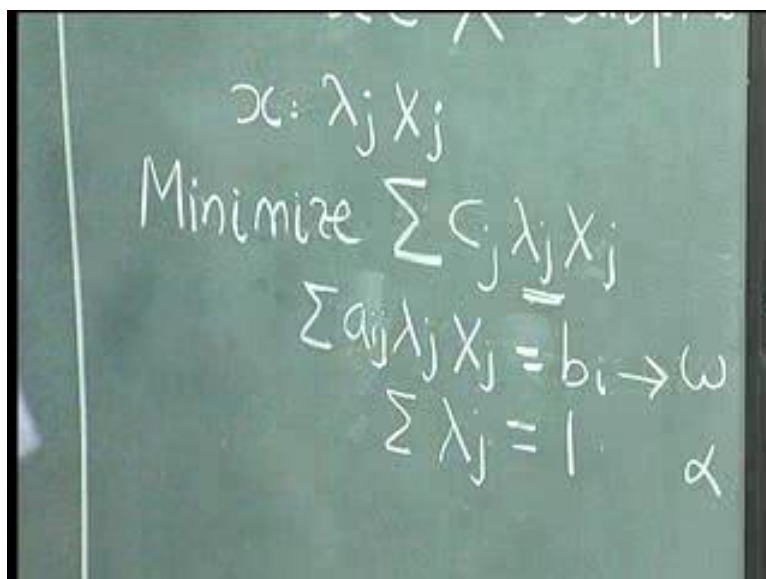 x: λj Xj
Minimize Σ Cj λj Xj
Σ aij λj Xj = bi → ω
Σ λj = 1 α